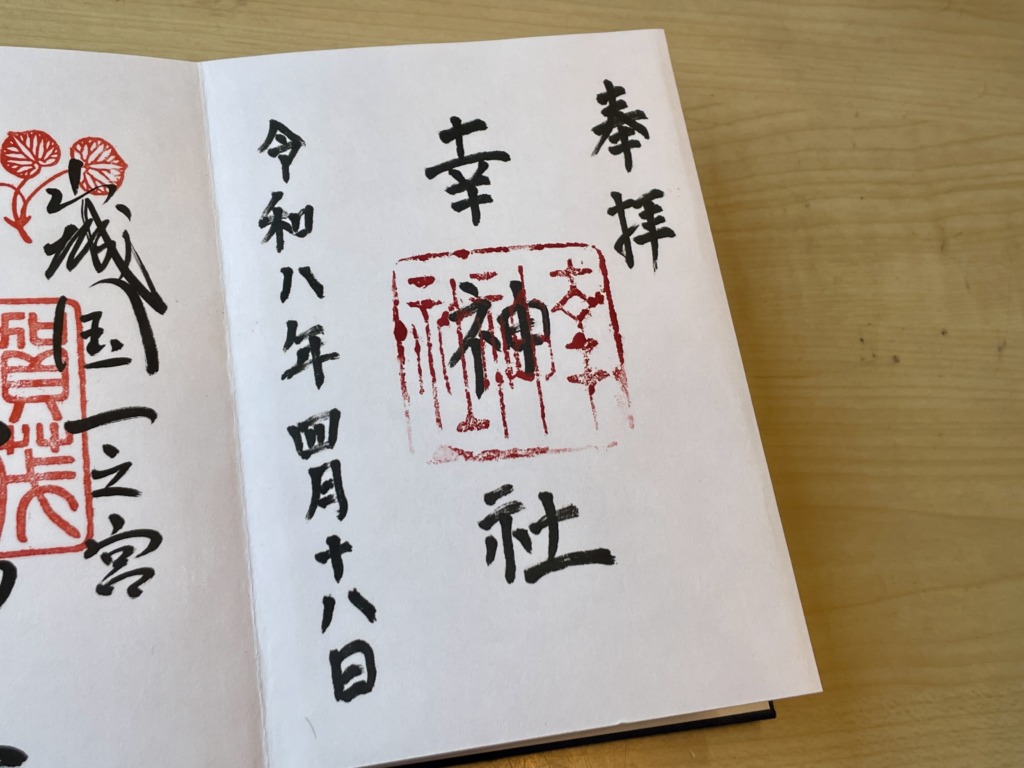 奉拝
幸神社
令和八年四月十八日
山城国一之宮
賀茂